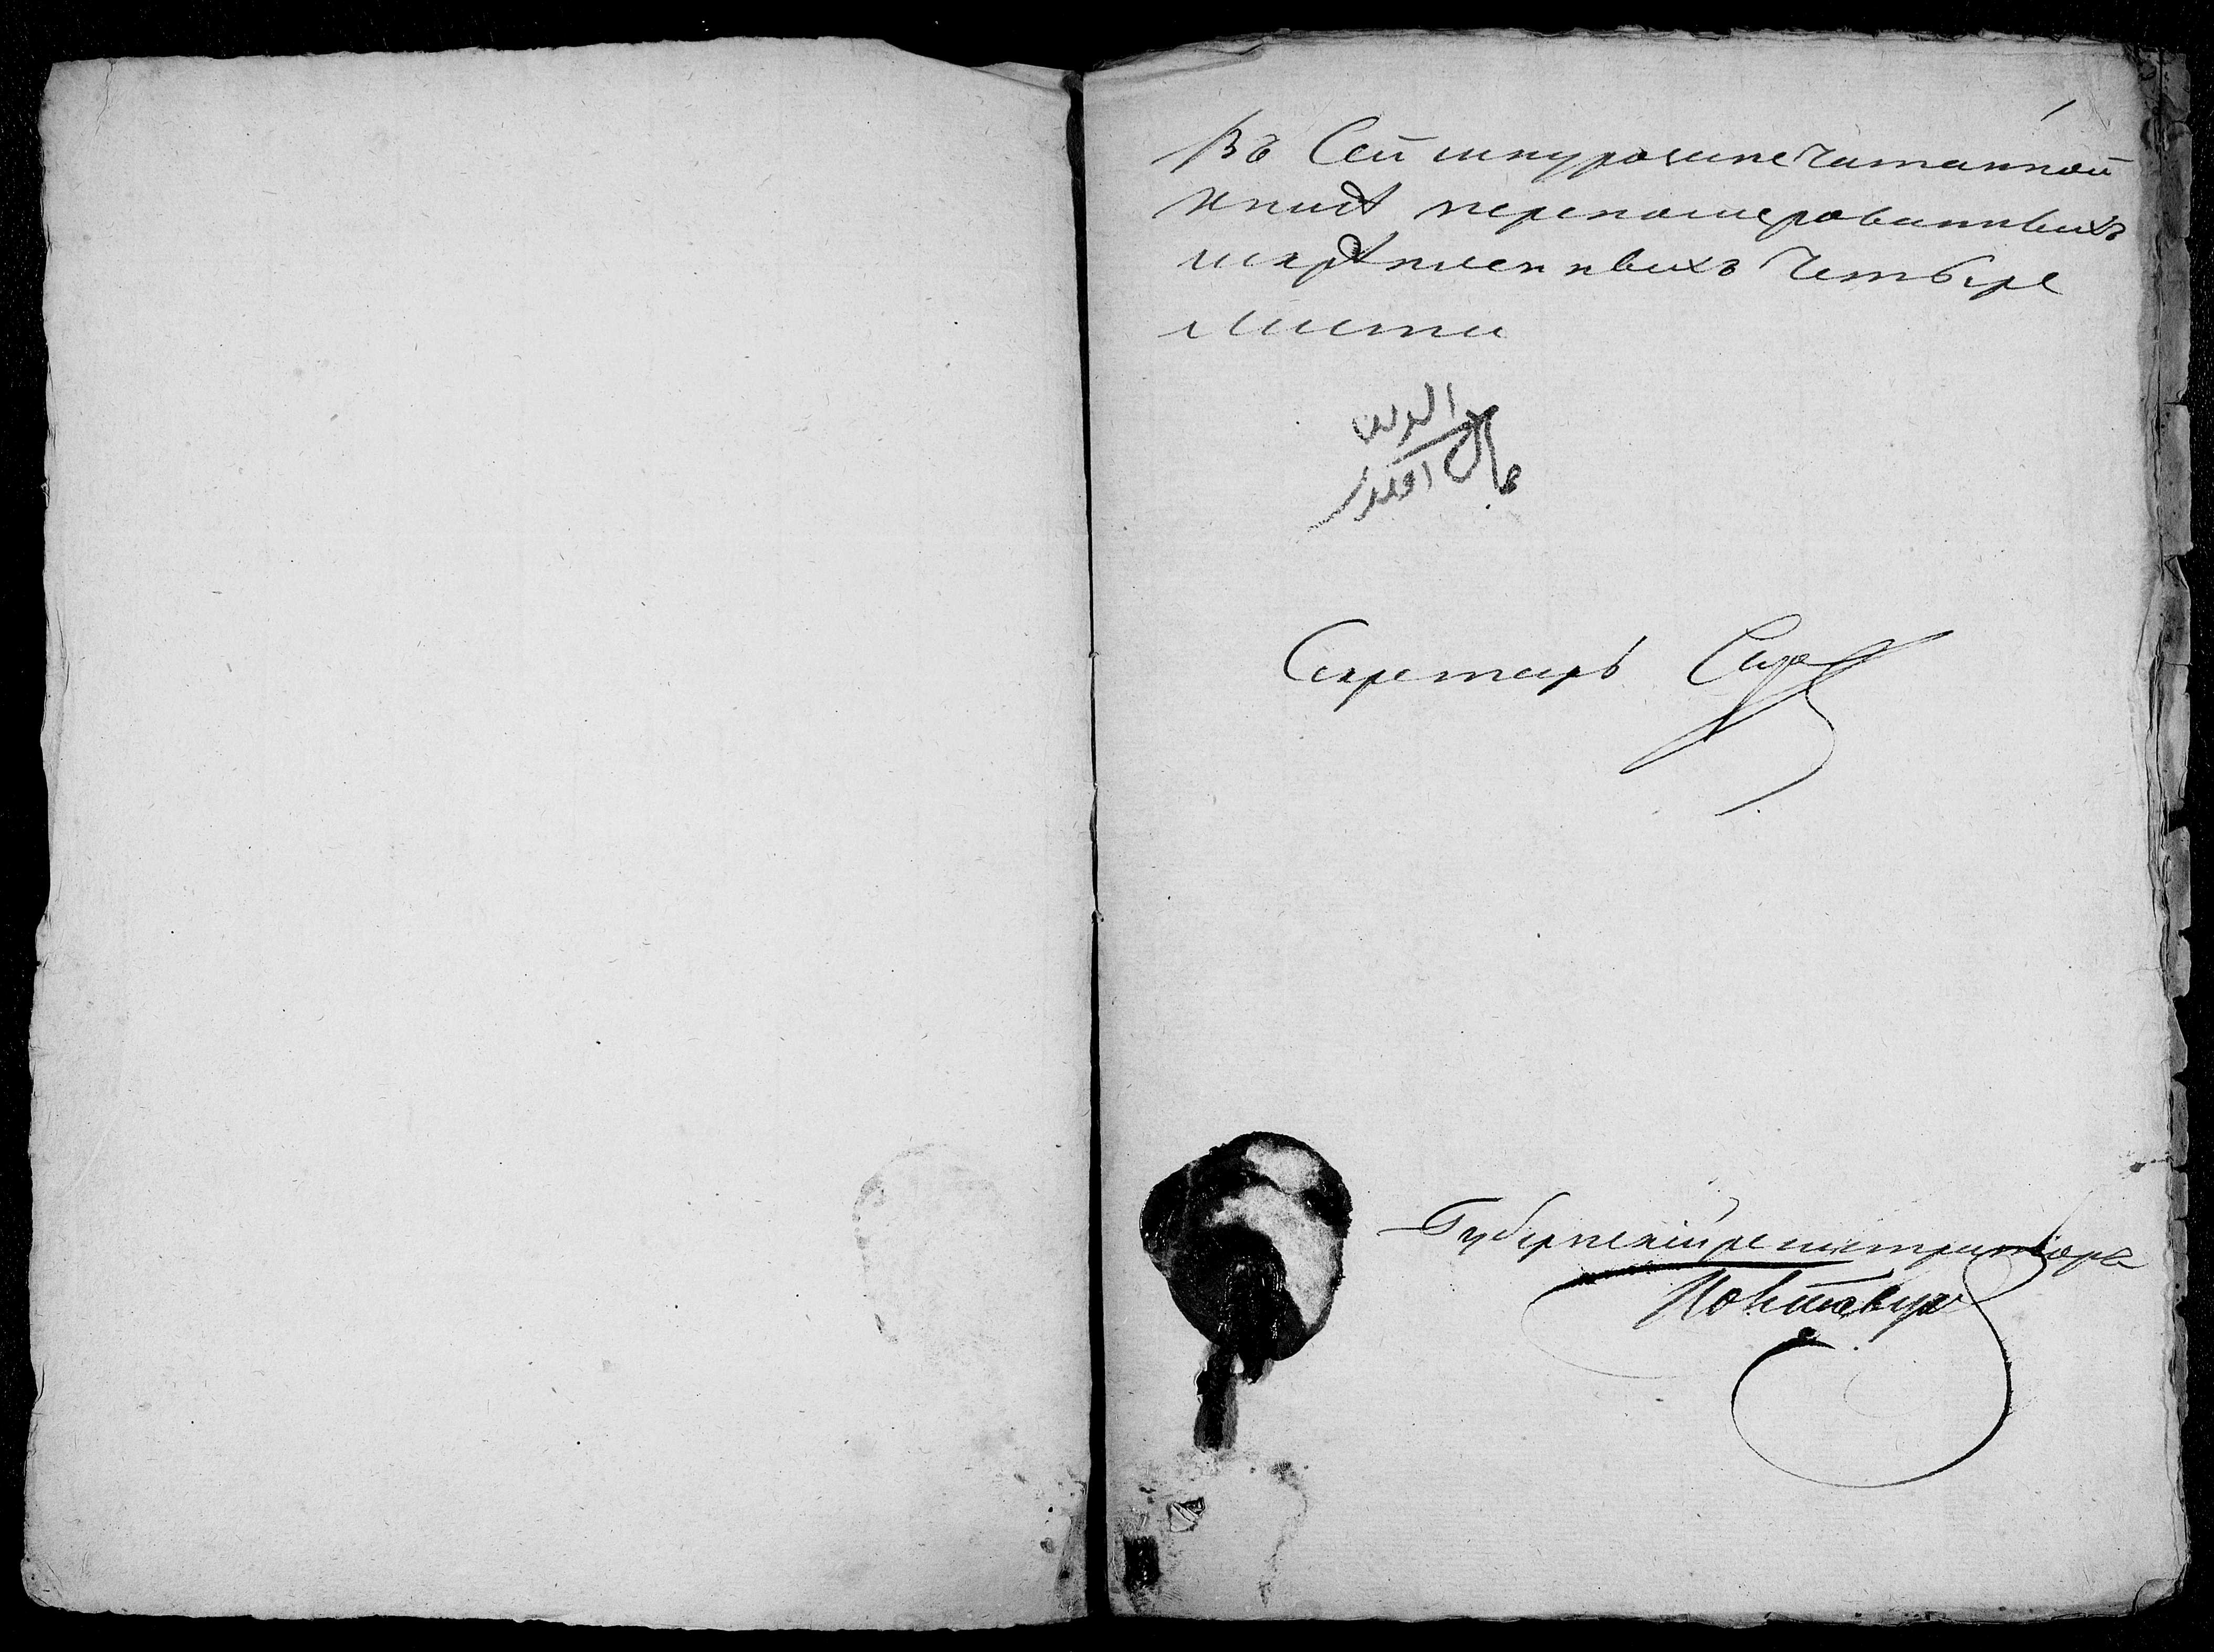 Въ Сей шнурозапечатанной
книгѣ перенумерованныхъ
искрѣпленныхъ Четыре
листа
Секретарь
Губернскій регистраторъ